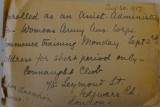 Aug 30. 1917.
Enrolled as an Assist. Adminis-
Womens Army Aux. Corps.
Commence training Monday Sept 3rd
Address for short period only -
Connaught Club
Seymour St.
Edgware Rd
London